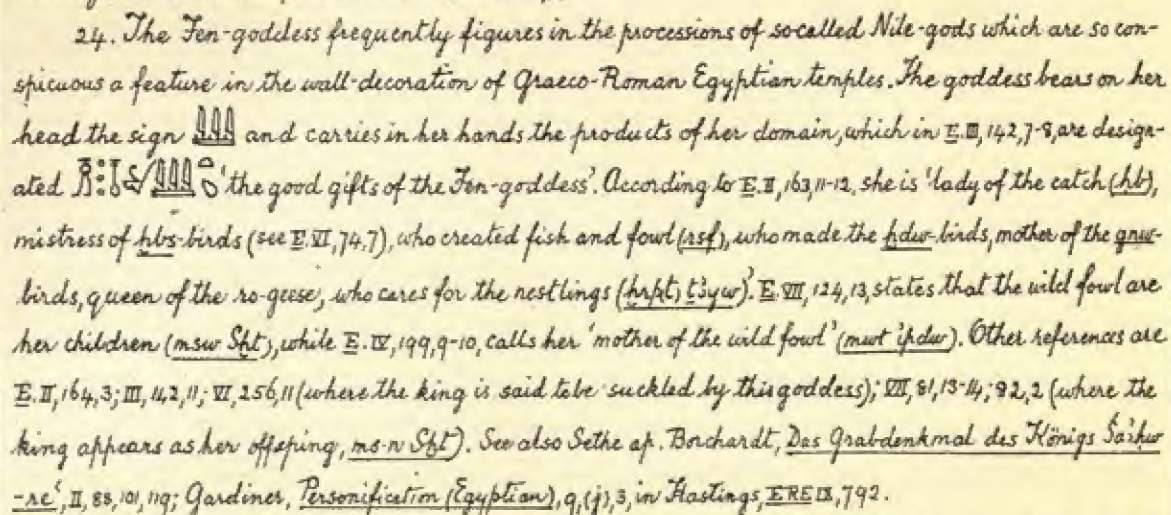 24. The Fen-goddess frequently figures in the processions of so-called Nile-gods which are so con-
spicuous a feature in the wall-decoration of Graeco-Roman Egyptian temples. The goddess bears on her
head the sign 𓇏 and carries in her hands the products of her domain, which in E. III, 142, 7-8, are design-
ated 'the good gifts of the Fen-goddess'. According to E. II, 163, 11-12, she is 'lady of the catch (ḥb),
mistress of ḥbs-birds (see E. VI, 74, 7), who created fish and fowl (rsf), who made the birds, mother of the gnw-
birds, queen of the ro-geese, who cares for the nestlings'. E. VII, 124, 13, states that the wild fowl are
her children (msw Sḫt), while E. IV, 199, 9-10, calls her 'mother of the wild fowl' (mwt ꞽpdw). Other references are
E. II, 164, 3; III, 142, 11; VI, 256, 11 (where the king is said to be suckled by this goddess); VII, 81, 13-14; 82, 2 (where the
king appears as her offsping, ms·n Sḫt). See also Sethe ap. Borchardt, Das Grabdenkmal des Königs Śaꜣḥu
-reꜥ, II, 88, 101, 119; Gardiner, Personification (Egyptian), 9, (j), 3, in Hastings, ERE IX, 792.